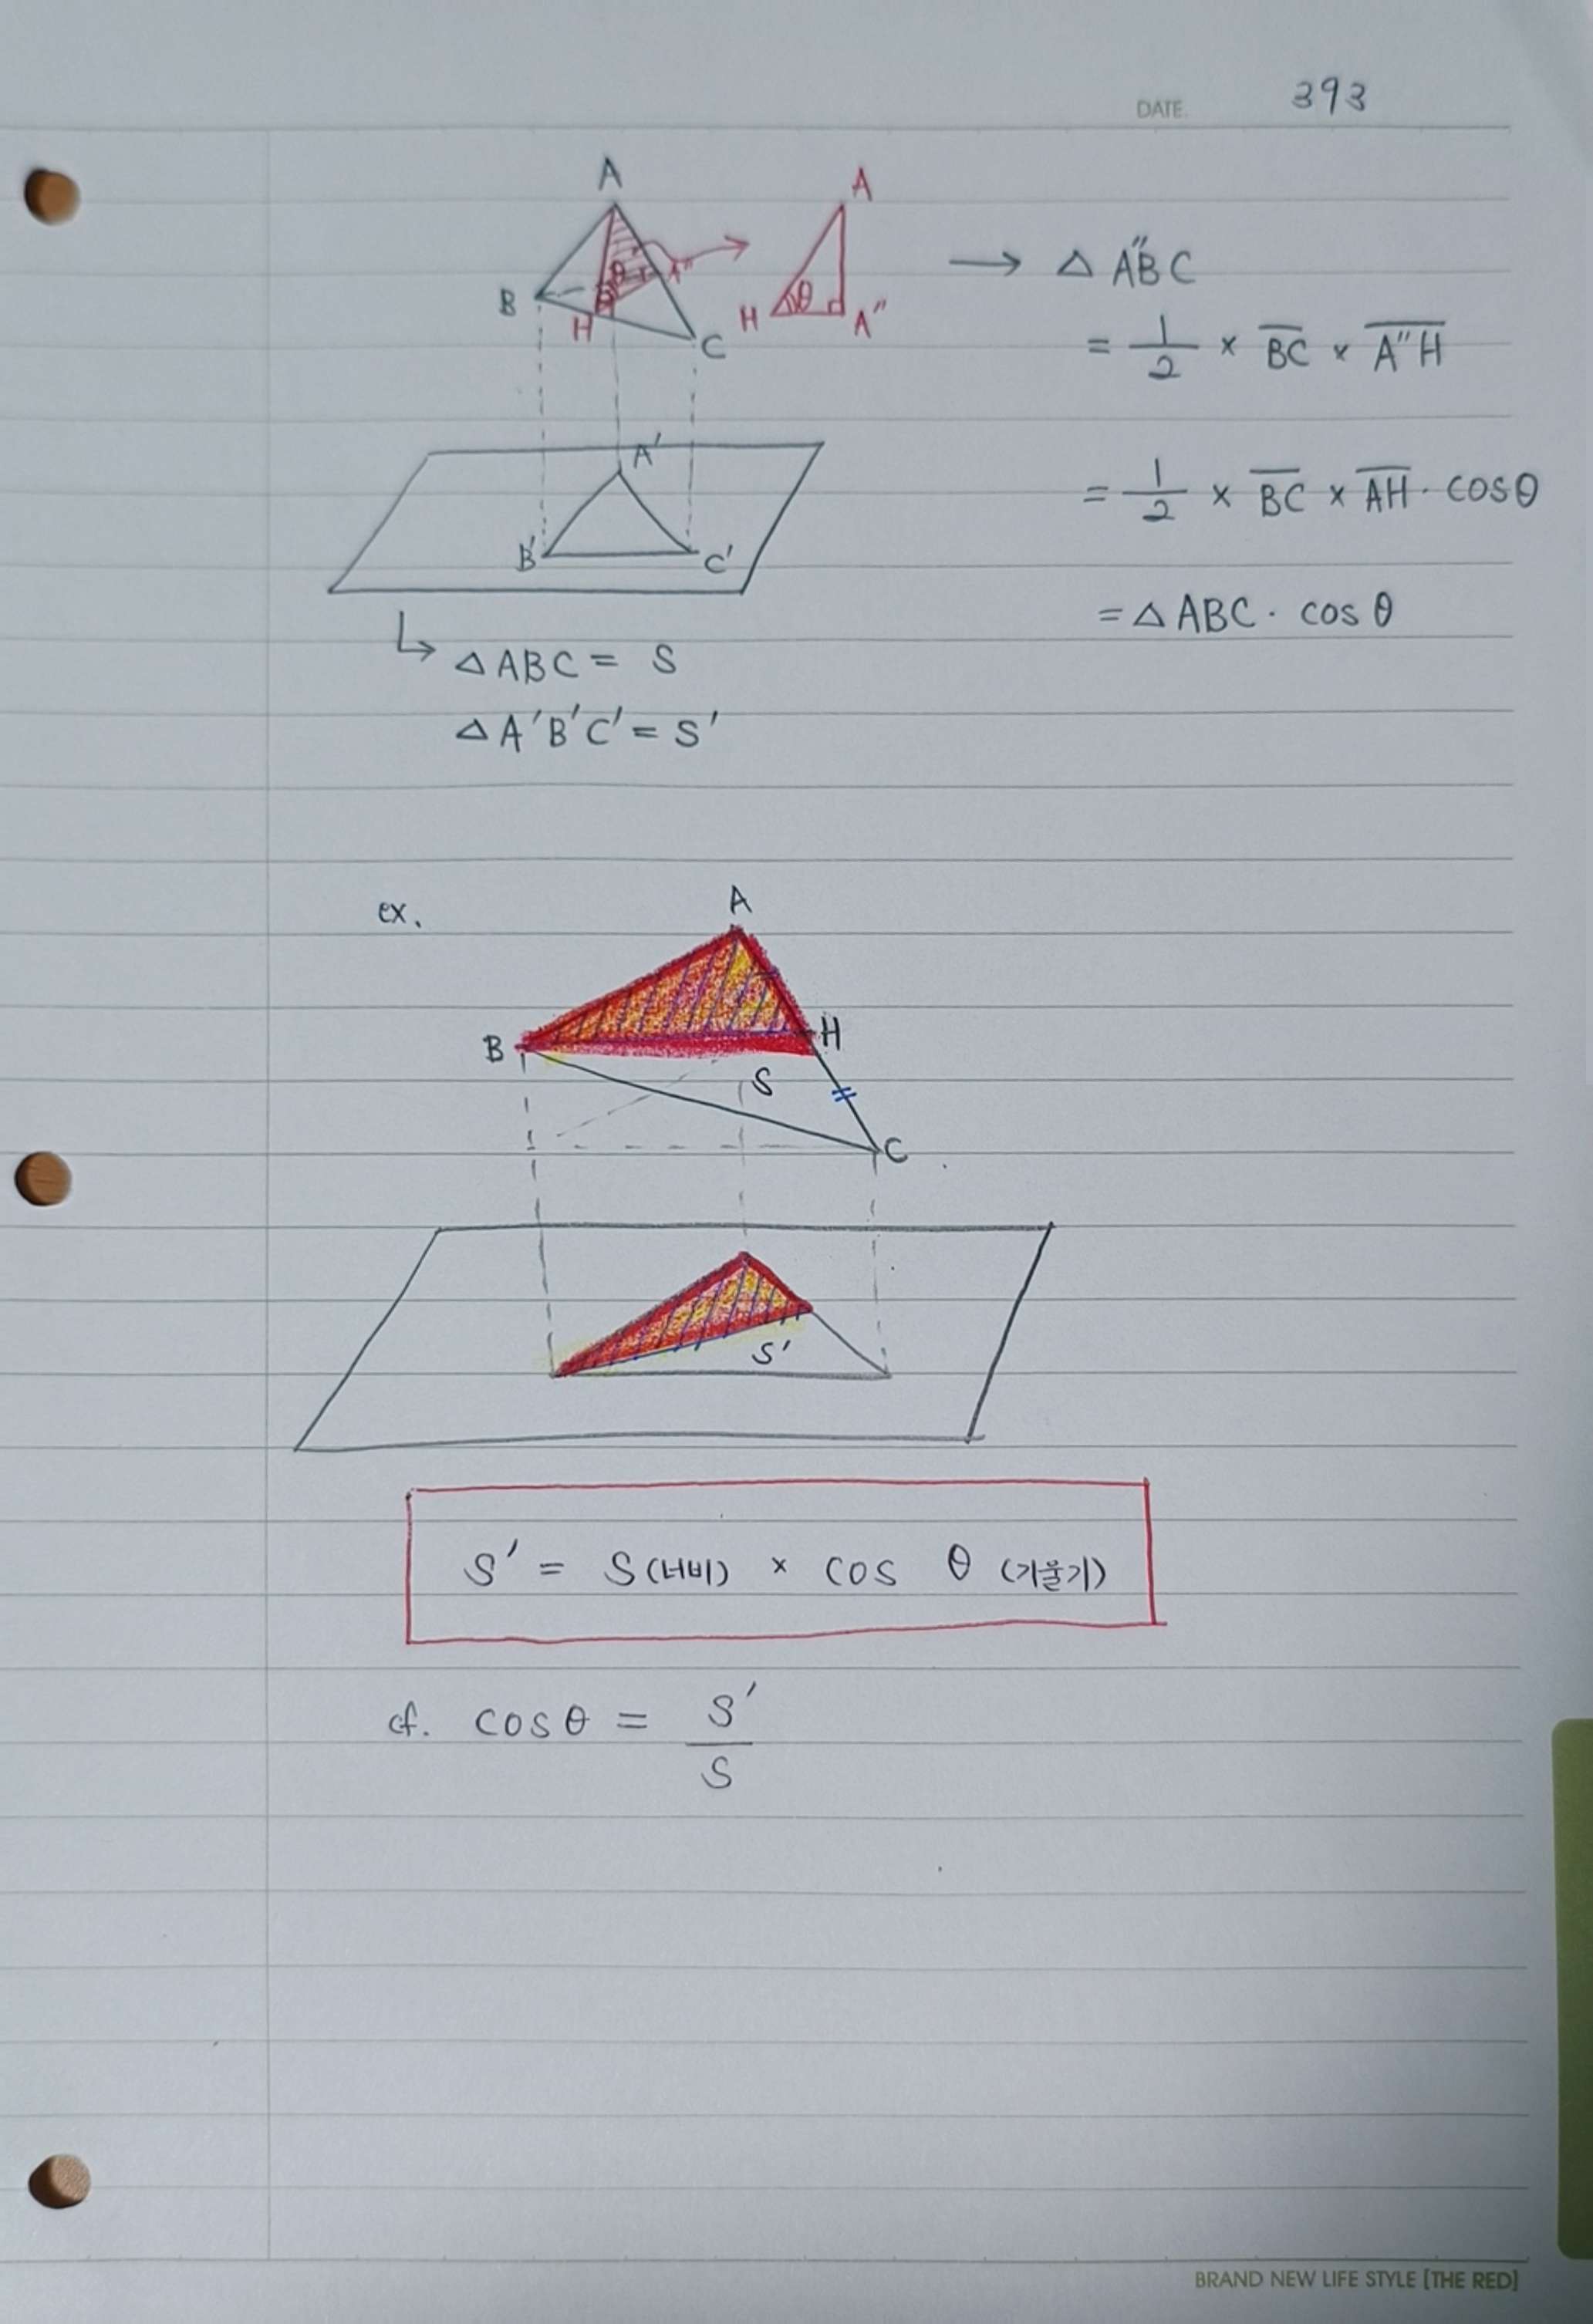 DATE. 393
A
A
θ A"
B H C
H θ A"
→ △A"BC
= 1/2 × BC × A"H
= 1/2 × BC × AH · cosθ
= △ABC · cosθ
A'
B' C'
↳ △ABC = S
△A'B'C' = S'
ex.
A
B H
S
C
S'
S' = S(너비) × cos θ (기울기)
cf. cosθ = S'/S
BRAND NEW LIFE STYLE [THE RED]